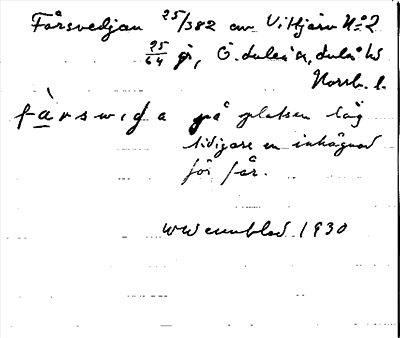 Fårsvedjan 25/382 av Vittjärv No 2
25/64 gr, Ö. Luleå sn, Luleå hd
Norrb. l.
fàrswiđa på platsen låg
tidigare en inhägnad
för får.
W Wennblad 1930